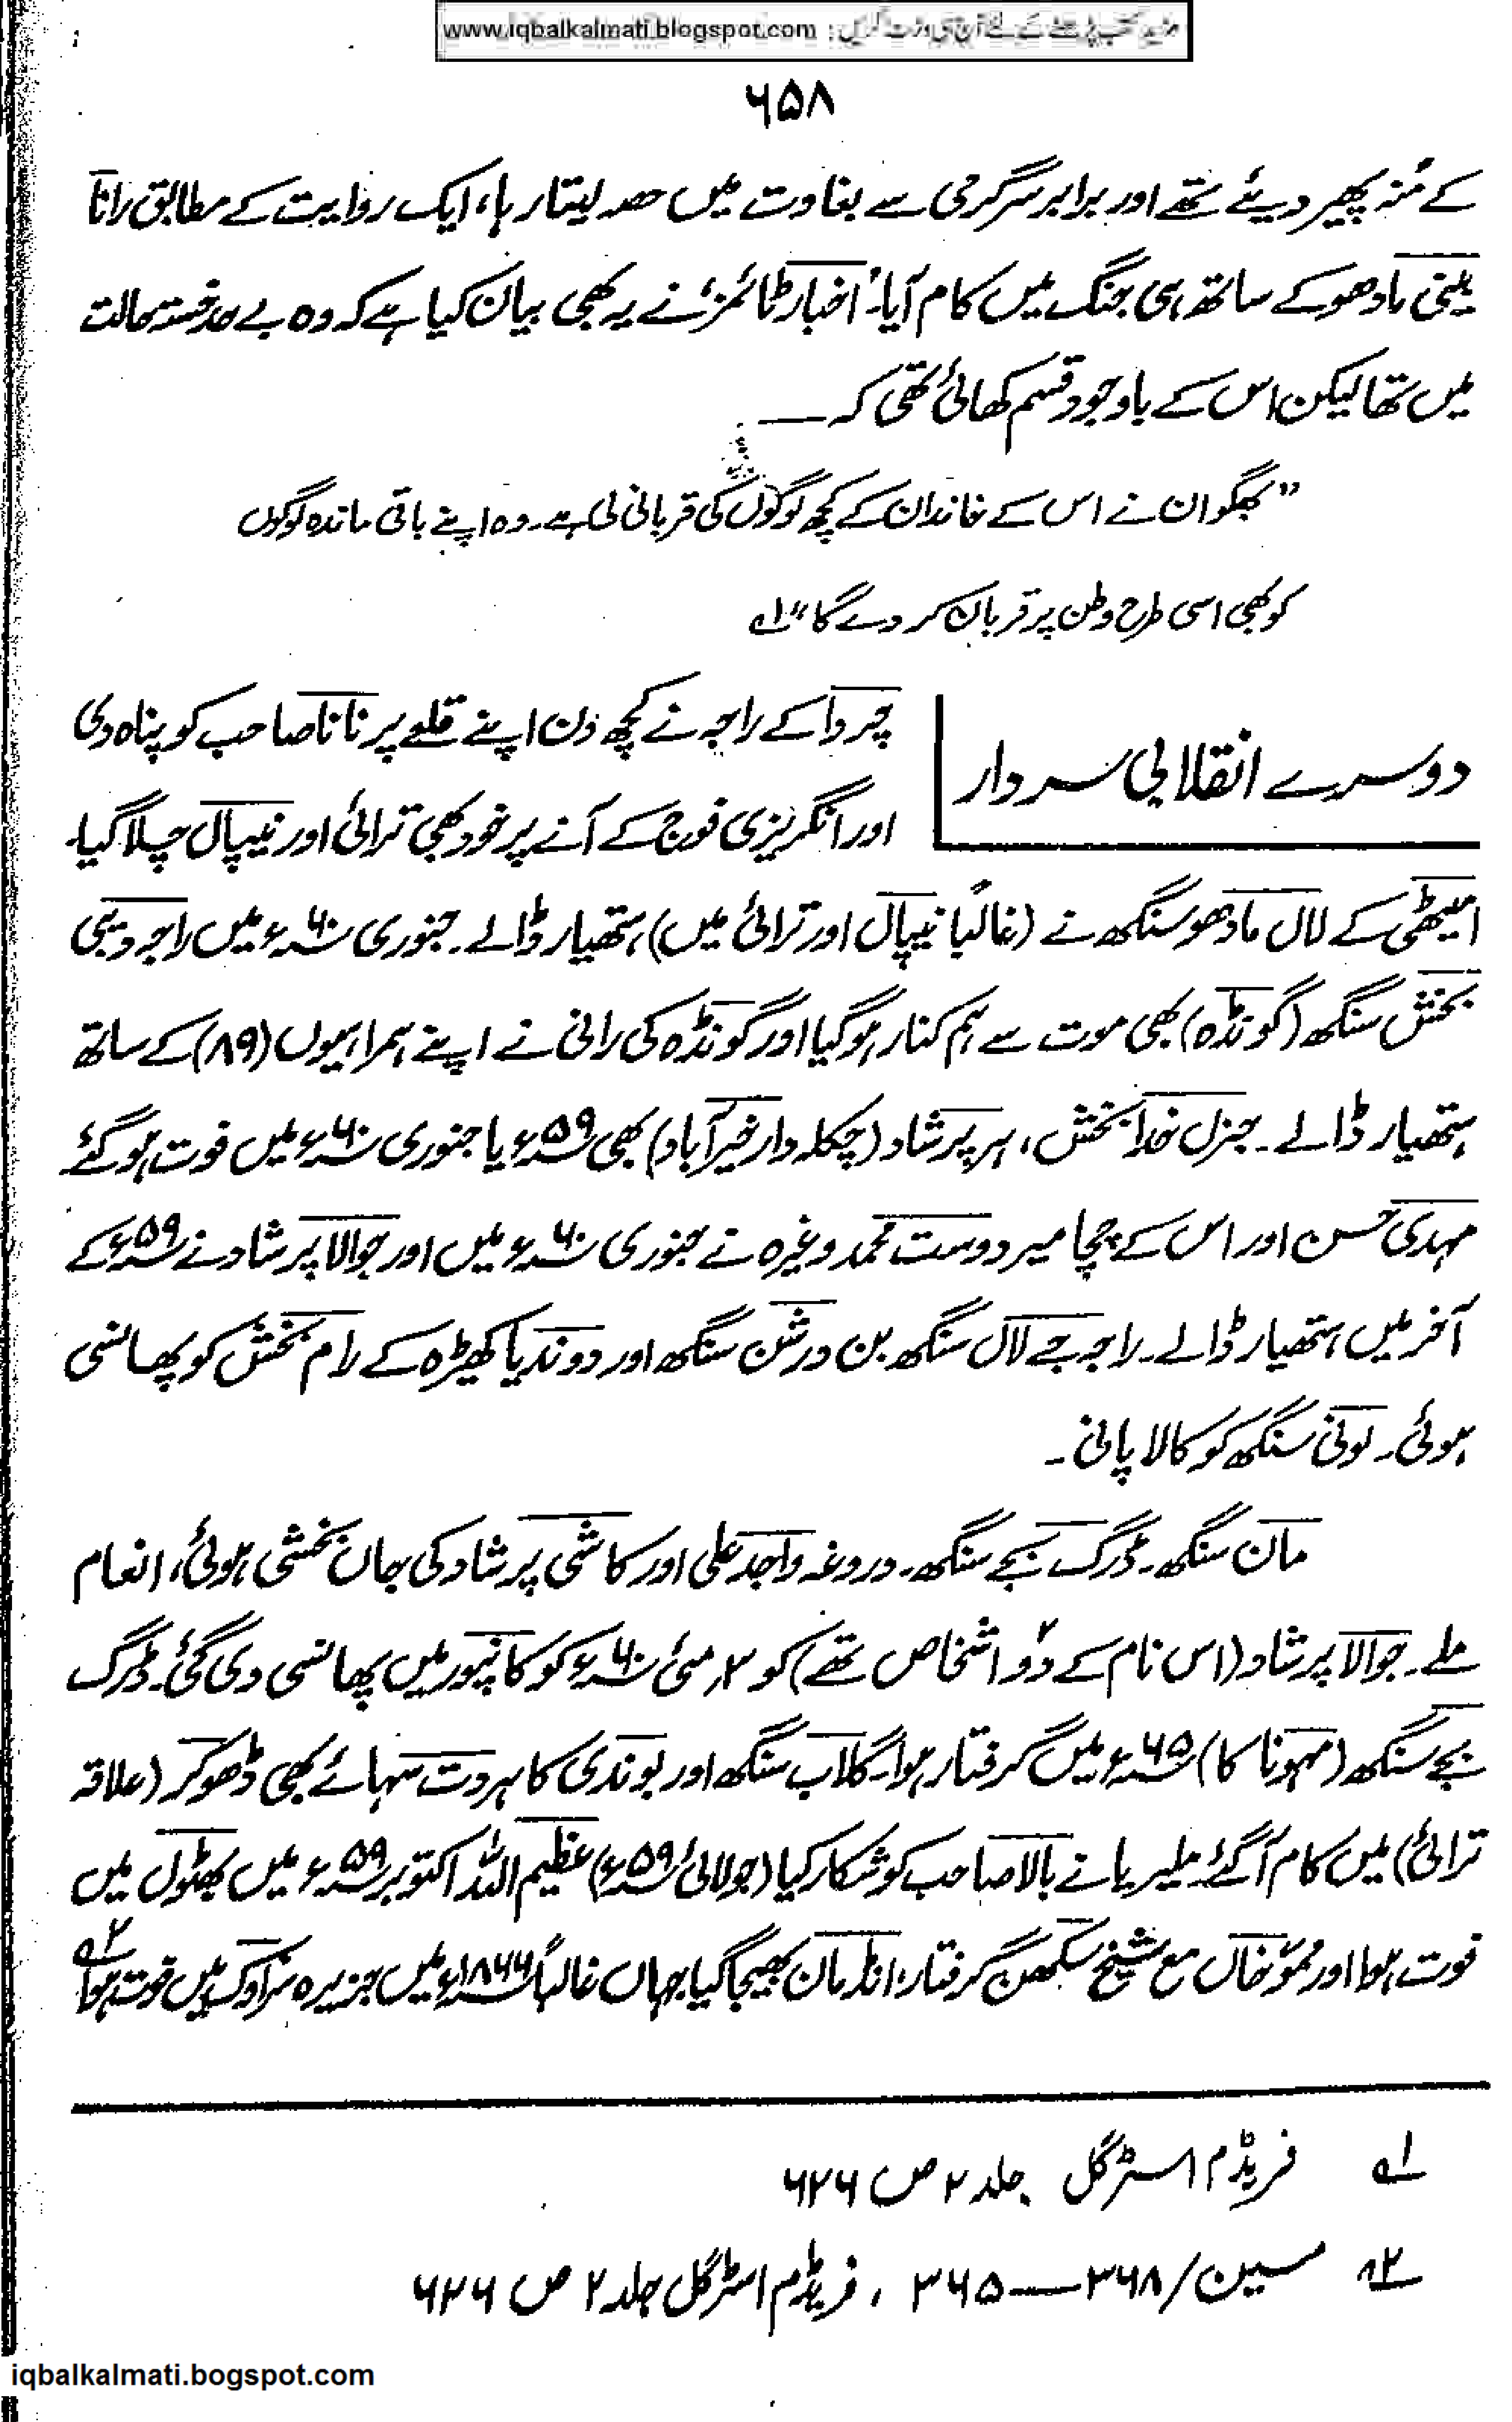 مزید کتب پڑھنے کے لئے آج ہی وزٹ کریں : www.iqbalkalmati.blogspot.com
۶۵۸
کے مُنہ پھیر دیئے تھے اور برابر سرگرمی سے بغاوت میں حصہ لیتا رہا، ایک روایت کے مطابق رانا
بینی مادھو کے ساتھ ہی جنگ میں کام آیا۔ "اخبار ٹائمز" نے یہ بھی بیان کیا ہے کہ وہ بے حد خستہ حالت
میں تھا لیکن اس کے باوجود قسم کھائی تھی کہ ——
"بھگوان نے اس کے خاندان کے کچھ لوگوں کی قربانی لی ہے۔ وہ اپنے باقی ماندہ لوگوں
کو بھی اسی طرح وطن پر قربان کر دے گا" ؎۱
دوسرے انقلابی سردار
چردا کے راجہ نے کچھ دن اپنے قلعے پر نانا صاحب کو پناہ دی
اور انگریزی فوج کے آنے پر خود بھی ترائی اور نیپال چلا گیا۔
امیٹھی کے لال مادھو سنگھ نے (غالباً نیپال اور ترائی میں) ہتھیار ڈالے۔ جنوری ۶۰ء میں راجہ دیبی
بخش سنگھ (گونڈہ) بھی موت سے ہم کنار ہو گیا اور گونڈہ کی رانی نے اپنے ہمراہیوں (۸۹) کے ساتھ
ہتھیار ڈالے۔ جنرل خدا بخش، ہر پرشاد (چکلہ دار خیرآباد) بھی ۵۹ء یا جنوری ۶۰ء میں فوت ہو گئے۔
مہدی حسن اور اس کے چچا میر دوست محمد وغیرہ نے جنوری ۶۰ء میں اور جوالا پرشاد نے ۵۹ء کے
آخر میں ہتھیار ڈالے۔ راجہ جے لال سنگھ بن درشن سنگھ اور دوندیا کھیڑہ کے رام بخش کو پھانسی
ہوئی۔ لونی سنگھ کو کالا پانی۔
مان سنگھ۔ ڈرگ بجے سنگھ۔ دروغہ واجد علی اور کاشی پرشاد کی جاں بخشی ہوئی، انعام
ملے۔ جوالا پرشاد (اس نام کے دو۲ اشخاص تھے) کو ۳؍ مئی ۶۰ء کو کانپور میں پھانسی دی گئی۔ ڈرگ
بجے سنگھ (مہونا کا) ۶۵ء میں گرفتار ہوا۔ گلاب سنگھ اور بوندی کا ہردت سہائے بھی ڈھوکر (علاقہ
ترائی) میں کام آ گئے۔ ملیریا نے بالا صاحب کو شکار کیا (جولائی ۵۹ء) عظیم اللہ اکتوبر ۵۹ء میں بھٹول میں
فوت ہوا اور ممّو خاں مع شیخ سکھن گرفتار، انڈمان بھیجا گیا جہاں غالباً ۱۸۶۶ء میں جزیرہ سراوک میں فوت ہوا ؎۲
؎۱ فریڈم اسٹرگل جلد ۲ ص ۶۲۶
؎۲ سین / ۳۶۸—۳۶۵ ، فریڈم اسٹرگل جلد ۲ ص ۶۲۶
iqbalkalmati.bogspot.com